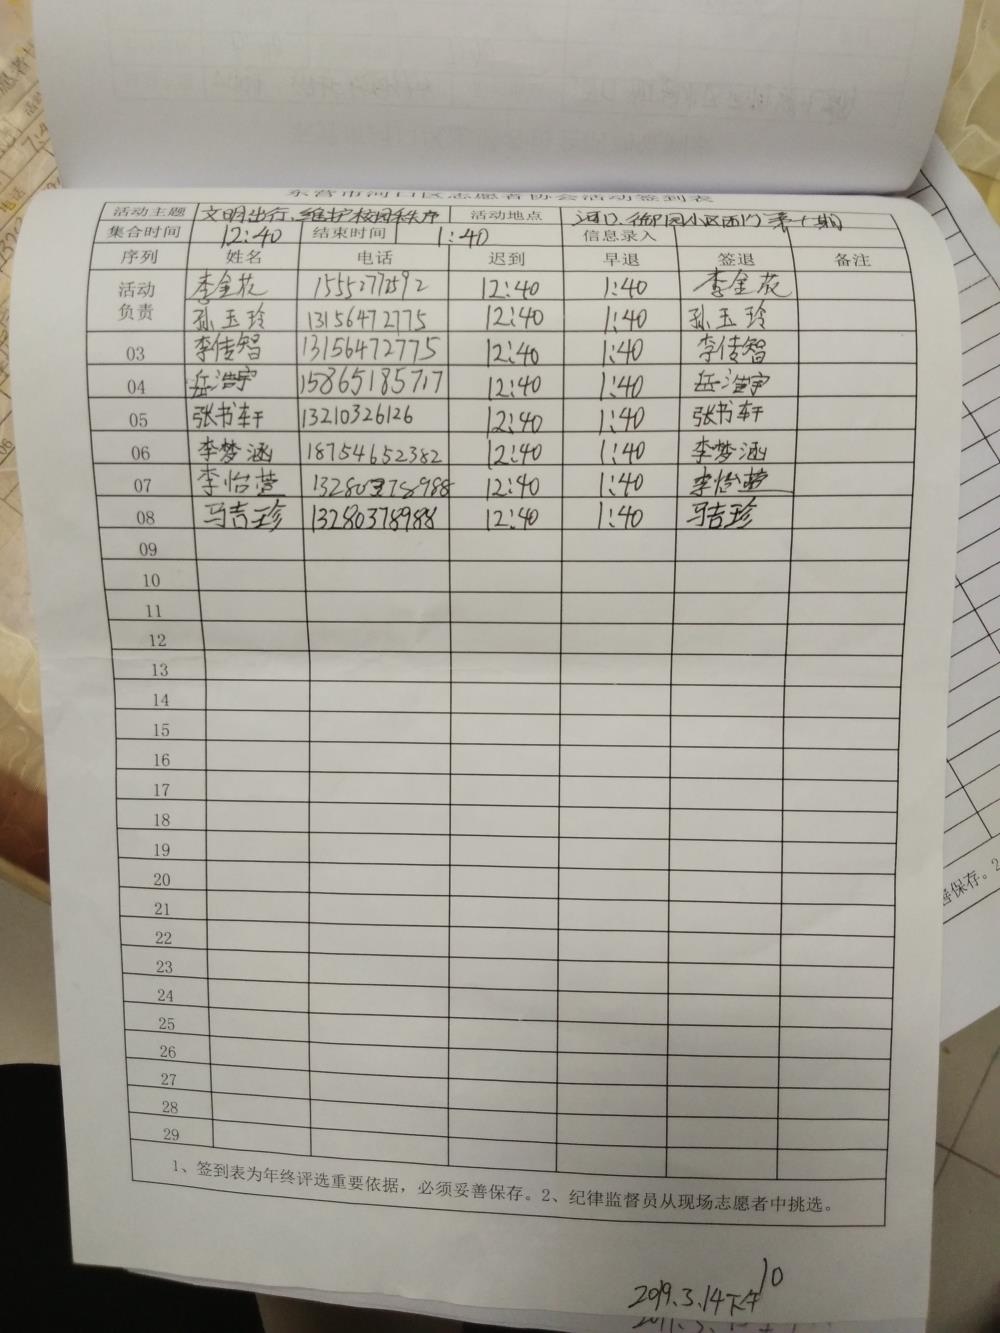 东营市河口区志愿者协会活动签到表
活动主题 文明出行、维护校园秩序 活动地点 河口、御园小区西门 第十期
集合时间 12:40 结束时间 1:40 信息录入
序列 姓名 电话 迟到 早退 签退 备注
活动负责 李金花 15552772592 12:40 1:40 李金花
孙玉玲 13156472775 12:40 1:40 孙玉玲
03 李传智 13156472775 12:40 1:40 李传智
04 岳浩宇 15865185717 12:40 1:40 岳浩宇
05 张书轩 13210326126 12:40 1:40 张书轩
06 李梦涵 18754652382 12:40 1:40 李梦涵
07 李怡萱 13280378988 12:40 1:40 李怡萱
08 马吉珍 13280378988 12:40 1:40 马吉珍
09
10
11
12
13
14
15
16
17
18
19
20
21
22
23
24
25
26
27
28
29
1、签到表为年终评选重要依据，必须妥善保存。2、纪律监督员从现场志愿者中挑选。
10
2019.3.14下午
善保存。2